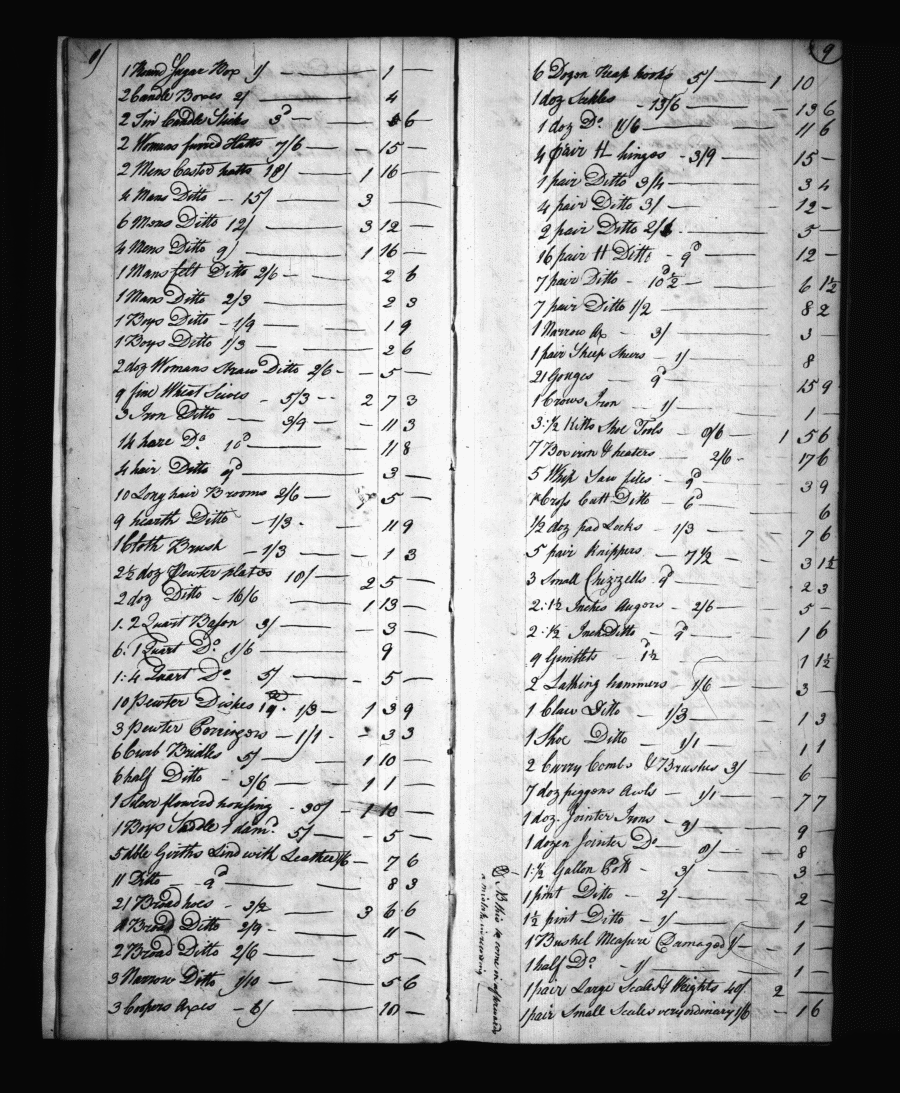 1 Round Sugar Box 1/ — 1 —
2 Candle Boxes 2/ — 4 —
2 Tin Candle Sticks 3d — 6 —
2 Womans furred Hatts 7/6 — 15 —
2 Mens Castor hatts 18/ — 1 16 —
4 Mans Ditto - 15/ — 3 —
6 Mens Ditto 12/ — 3 12 —
4 Mens Ditto 9/ — 1 16 —
1 Mans felt Ditto 2/6 — 2 6
1 Mans Ditto 2/3 — 2 3
1 Boys Ditto - 1/9 — 1 9
1 Boys Ditto 1/3 — 2 6
2 doz Womans Straw Ditto 2/6 - 5 —
9 fine Wheat Sieves - 5/3 - 2 7 3
3 Iron Ditto — 3/9 — 11 3
14 hare Do 10d — 11 8
4 hair Ditto 9d — 3 —
10 Long hair Brooms 2/6 — 5 —
9 hearth Ditto - 1/3 - 11 9
1 Cloth Brush - 1/3 — 1 3
2½ doz Pewter plates 18/ — 2 5 —
2 doz Ditto - 16/6 — 1 13 —
1. 2 Quart Bason 3/ — 3 —
6. 1 Quart Do 1/6 — 9
1: 4 Quart Do 5/ — 5 —
10 Pewter Dishes 1/9 — 1 3 9
3 Pewter Porringers - 1/1 - 3 3
6 Curb Bridles 5/ — 1 10 —
6 half Ditto - 3/6 — 1 1 —
1 Silver flowered housing - 30/ — 1 10 —
1 Boys Saddle damd. 5/ — 5 —
5 dble Girths Lind with Leather 1/6 — 7 6
11 Ditto — 9d — 8 3
21 Broad hoes - 3/2 — 3 6 6
4 Broad Ditto 2/9 — 11 —
2 Broad Ditto 2/6 — 5 —
3 Narrow Ditto 1/10 — 5 6
3 Coopers Axes - 6/ — 18 —
9
6 Dozen Reap hooks 5/ — 1 10
1 doz Sickles - 13/6 — 13 6
1 doz Do 11/6 — 11 6
4 pair H hinges - 3/9 — 15 —
1 pair Ditto 3/4 — 3 4
4 pair Ditto 3/ — 12 —
2 pair Ditto 2/6 — 5 —
16 pair H Ditto - 9d — 12 —
7 pair Ditto - 10d½ — 6 1½
7 pair Ditto 1/2 — 8 2
1 Narrow Ax - 3/ — 3
1 pair Sheep Shears - 1/ — 8
21 Gouges — 9d — 15 9
1 Crows Iron - 1/ — 1 —
3:½ Kitts Shoe Tools - 8/6 — 1 5 6
7 Box iron & heaters — 2/6 - 17 6
5 Whip Saw files - 9d — 3 9
1 Cross Cutt Ditto - 6d — 6
½ doz pad Locks - 1/3 — 7 6
5 pair Knippers — 7½ — 3 1½
3 Small Chizzells - 9d — 2 3
2:1½ Inches Augers - 2/6 — 5 —
2:½ Inch Ditto - 9d — 1 6
9 Gimblets - 1d½ — 1 1½
2 Lathing hammers 1/6 — 3
1 Claw Ditto — 1/3 — 1 3
1 Shoe Ditto — 1/1 — 1 1
2 Curry Combs & Brushes 3/ — 6
7 doz peggons Awls — 1/1 — 7 7
1 doz. Jointer Irons - 9/ — 9
1 dozen Jointer Do — 8/ — 8
1:½ Gallon Pott — 3/ — 3 —
1 pint Ditto — 2/ — 2 —
1½ pint Ditto - 1/ — 1 —
1 Bushel Measure Damaged 1/ — 1 —
1 half Do - 1/ — 1 —
1 pair Large Scales & Weights 40/. 2 —
1 pair Small Scales very ordinary 1/6 — 1 6
NB this to come in afterwards
a mistake in